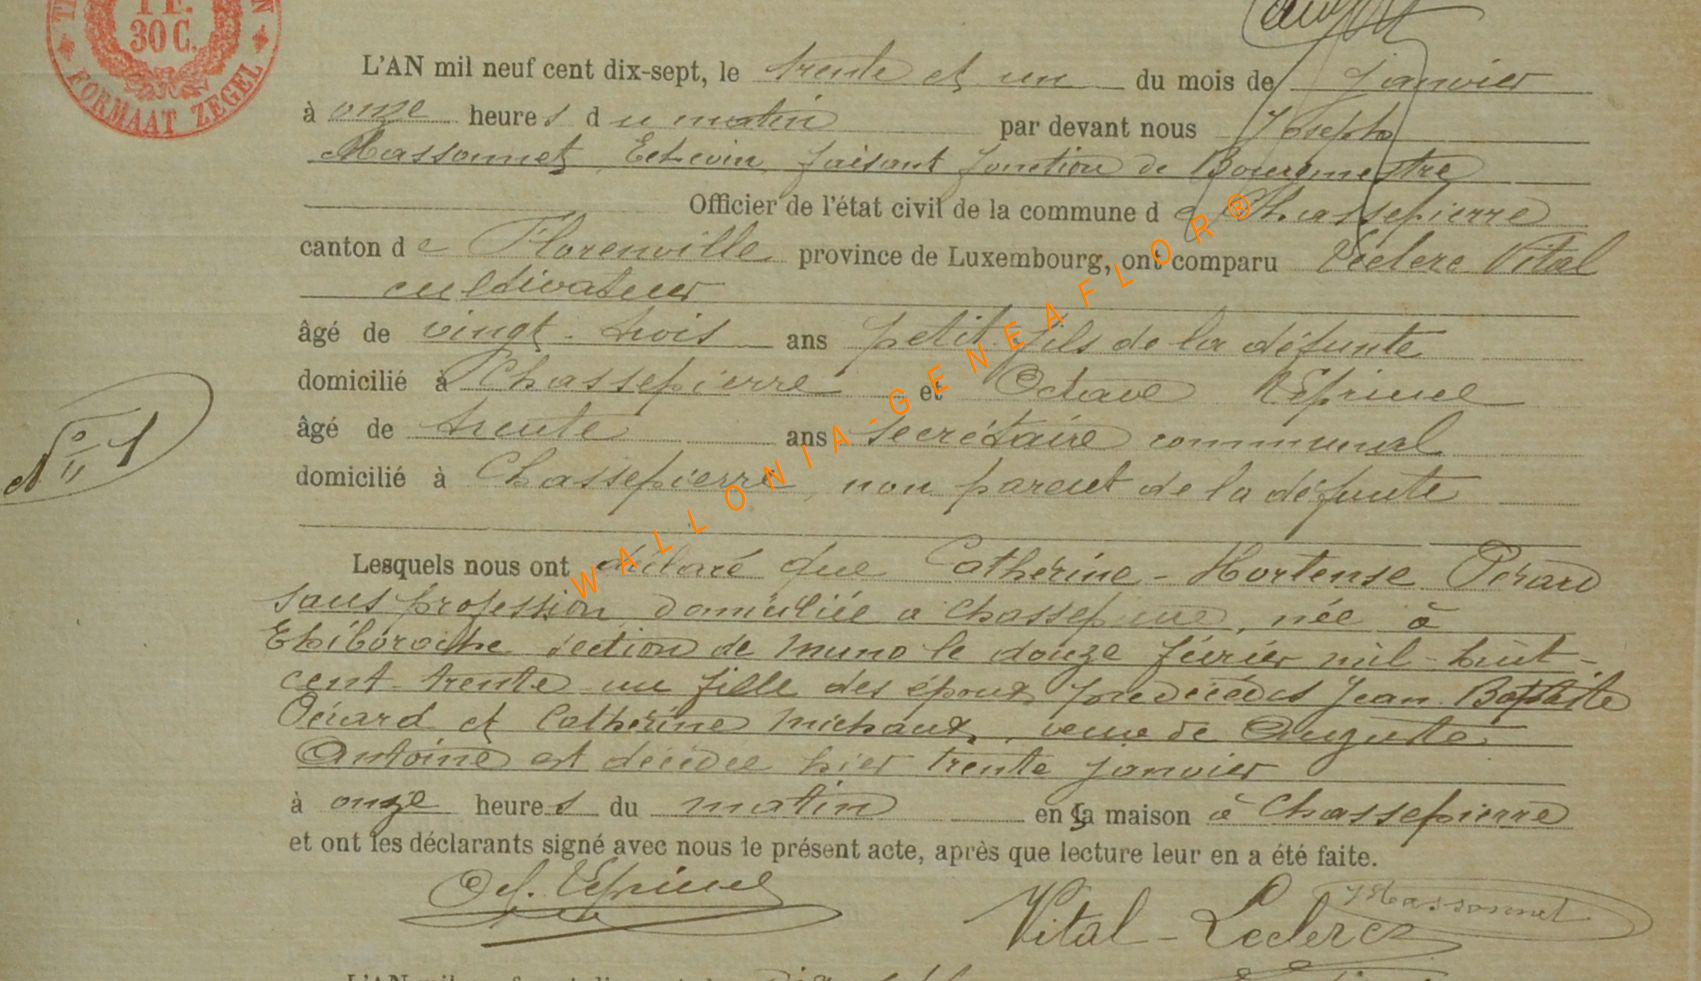 1 F.
30 C.
FORMAAT ZEGEL
L'AN mil neuf cent dix-sept, le trente et un du mois de janvier
à onze heures du matin par devant nous Joseph
Massonnet, Echevin, faisant fonction de Bourgmestre
Officier de l'état civil de la commune de Chassepierre
canton de Florenville province de Luxembourg, ont comparu Leclerc Vital
cultivateur
âgé de vingt-trois ans petit-fils de la défunte
domicilié à Chassepierre et Octave Lépinel
âgé de trente ans secrétaire communal
domicilié à Chassepierre, non parent de la défunte
N° 1
Lesquels nous ont déclaré que Catherine-Hortense Pérard
sans profession, domiciliée à Chassepierre, née à
section de Muno le douze février mil-huit-
cent-trente-un fille des époux prédécédés Jean Baptiste
Pérard et Catherine Michaux, veuve de Auguste
Antoine est décédée hier trente janvier
à onze heures du matin en sa maison à Chassepierre
et ont les déclarants signé avec nous le présent acte, après que lecture leur en a été faite.
Oct. Lépinel
Vital-Leclerc
J Massonnet
WALLONIA-GENEAFLOR®